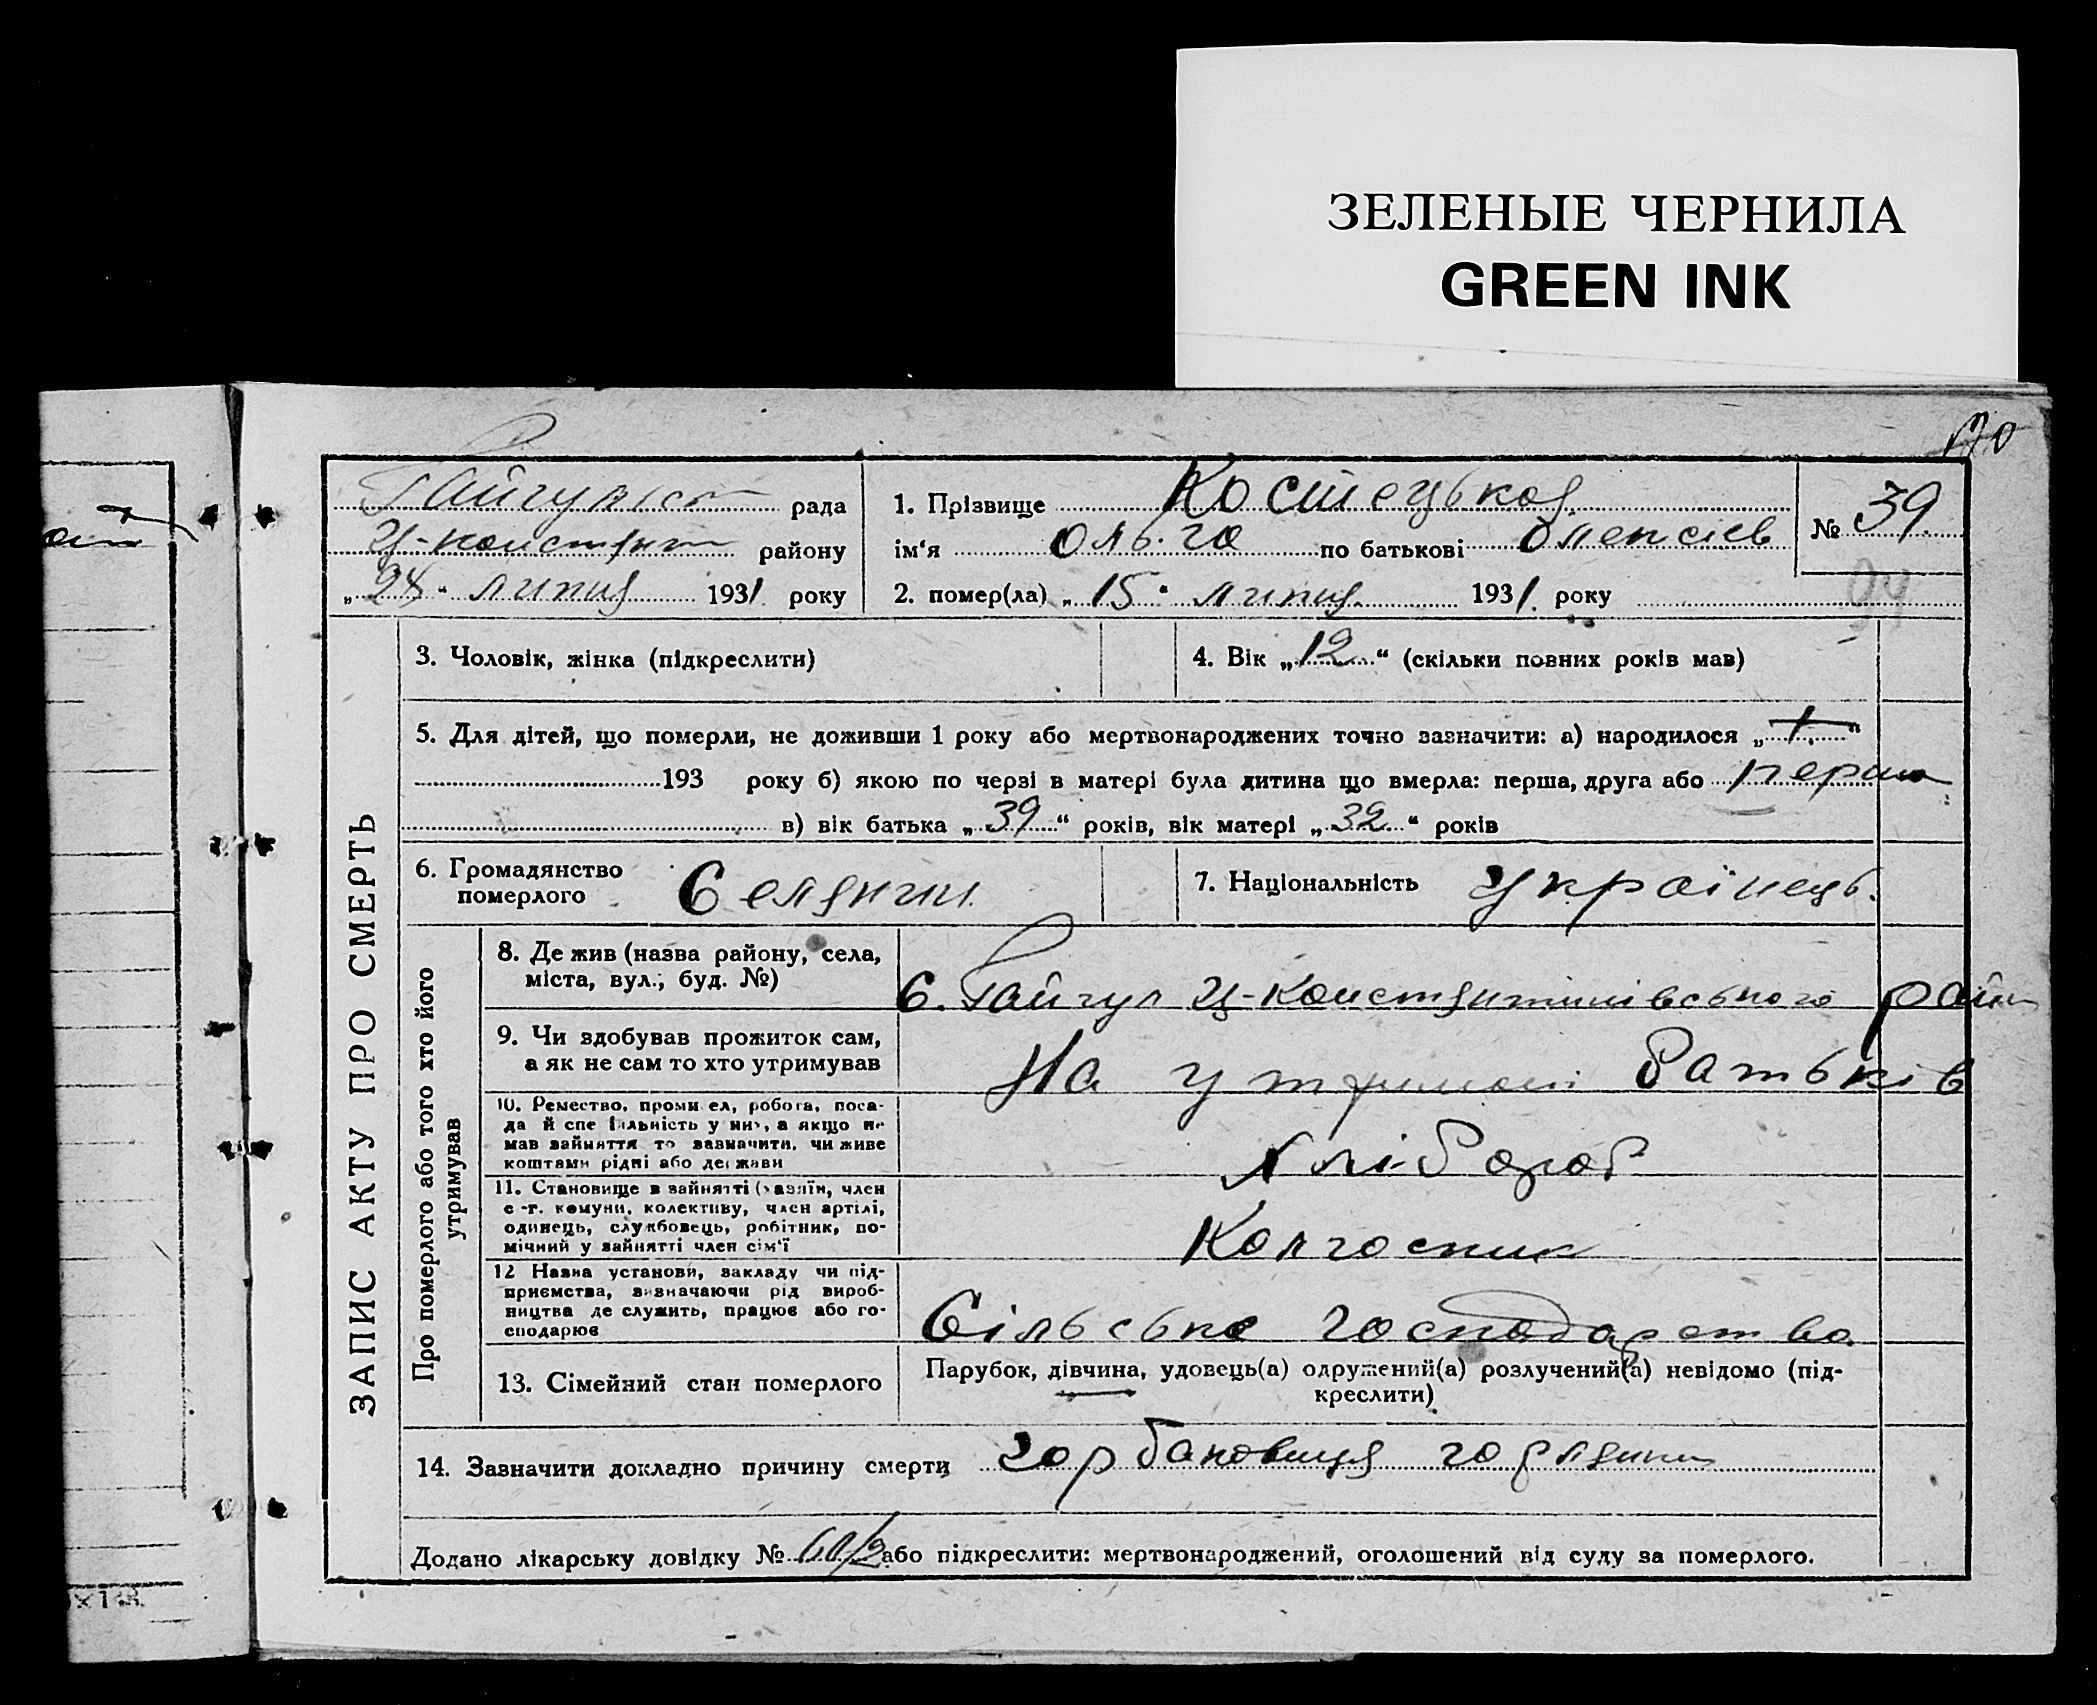 ЗЕЛЕНЫЕ ЧЕРНИЛА
GREEN INK
рада
району
„ “ липня 1931 року
1. Прізвище Костецькая
ім‘я Ольга по батькові Олексіев
2. помер(ла) „15“ липня 1931 року
№ 39
94
ЗАПИС АКТУ ПРО СМЕРТЬ
3. Чоловік, жінка (підкреслити)
4. Вік „12“ (скільки повних років мав)
5. Для дітей, що померли, не доживши 1 року або мертвонароджених точно зазначити: а) народилося „ “
193 року б) якою по черзі в матері була дитина що вмерла: перша, друга або перша
в) вік батька „39“ років, вік матері „32“ років
6. Громадянство
померлого Селянин
7. Національність Українець.
Про померлого або того хто його
утримував
8. Де жив (назва району, села,
міста, вул., буд. №)
С. Гайчул Ц-Констянтинівського район
9. Чи здобував прожиток сам,
а як не сам то хто утримував
На утримані батьків
10. Ремество, промисел, робота, поса-
да й спеціальність у них, а якщо не
мав зайняття то зазначити, чи живе
коштами рідні або держави
Хлібороб
11. Становище в зайнятті (хазяїн, член
с.-г. комуни, колективу, член артілі,
одинець, службовець, робітник, по-
мічний у зайнятті член сім‘ї
Колгосник
12 Назва установи, закладу чи під-
приємства, визначаючи рід вироб-
ництва де служить, працює або го-
сподарює
Сільське господарство
13. Сімейний стан померлого
Парубок, дівчина, удовець(а) одружений(а) розлучений(а) невідомо (під-
креслити)
14. Зазначити докладно причину смерти
Додано лікарську довідку № або підкреслити: мертвонароджений, оголошений від суду за померлого.